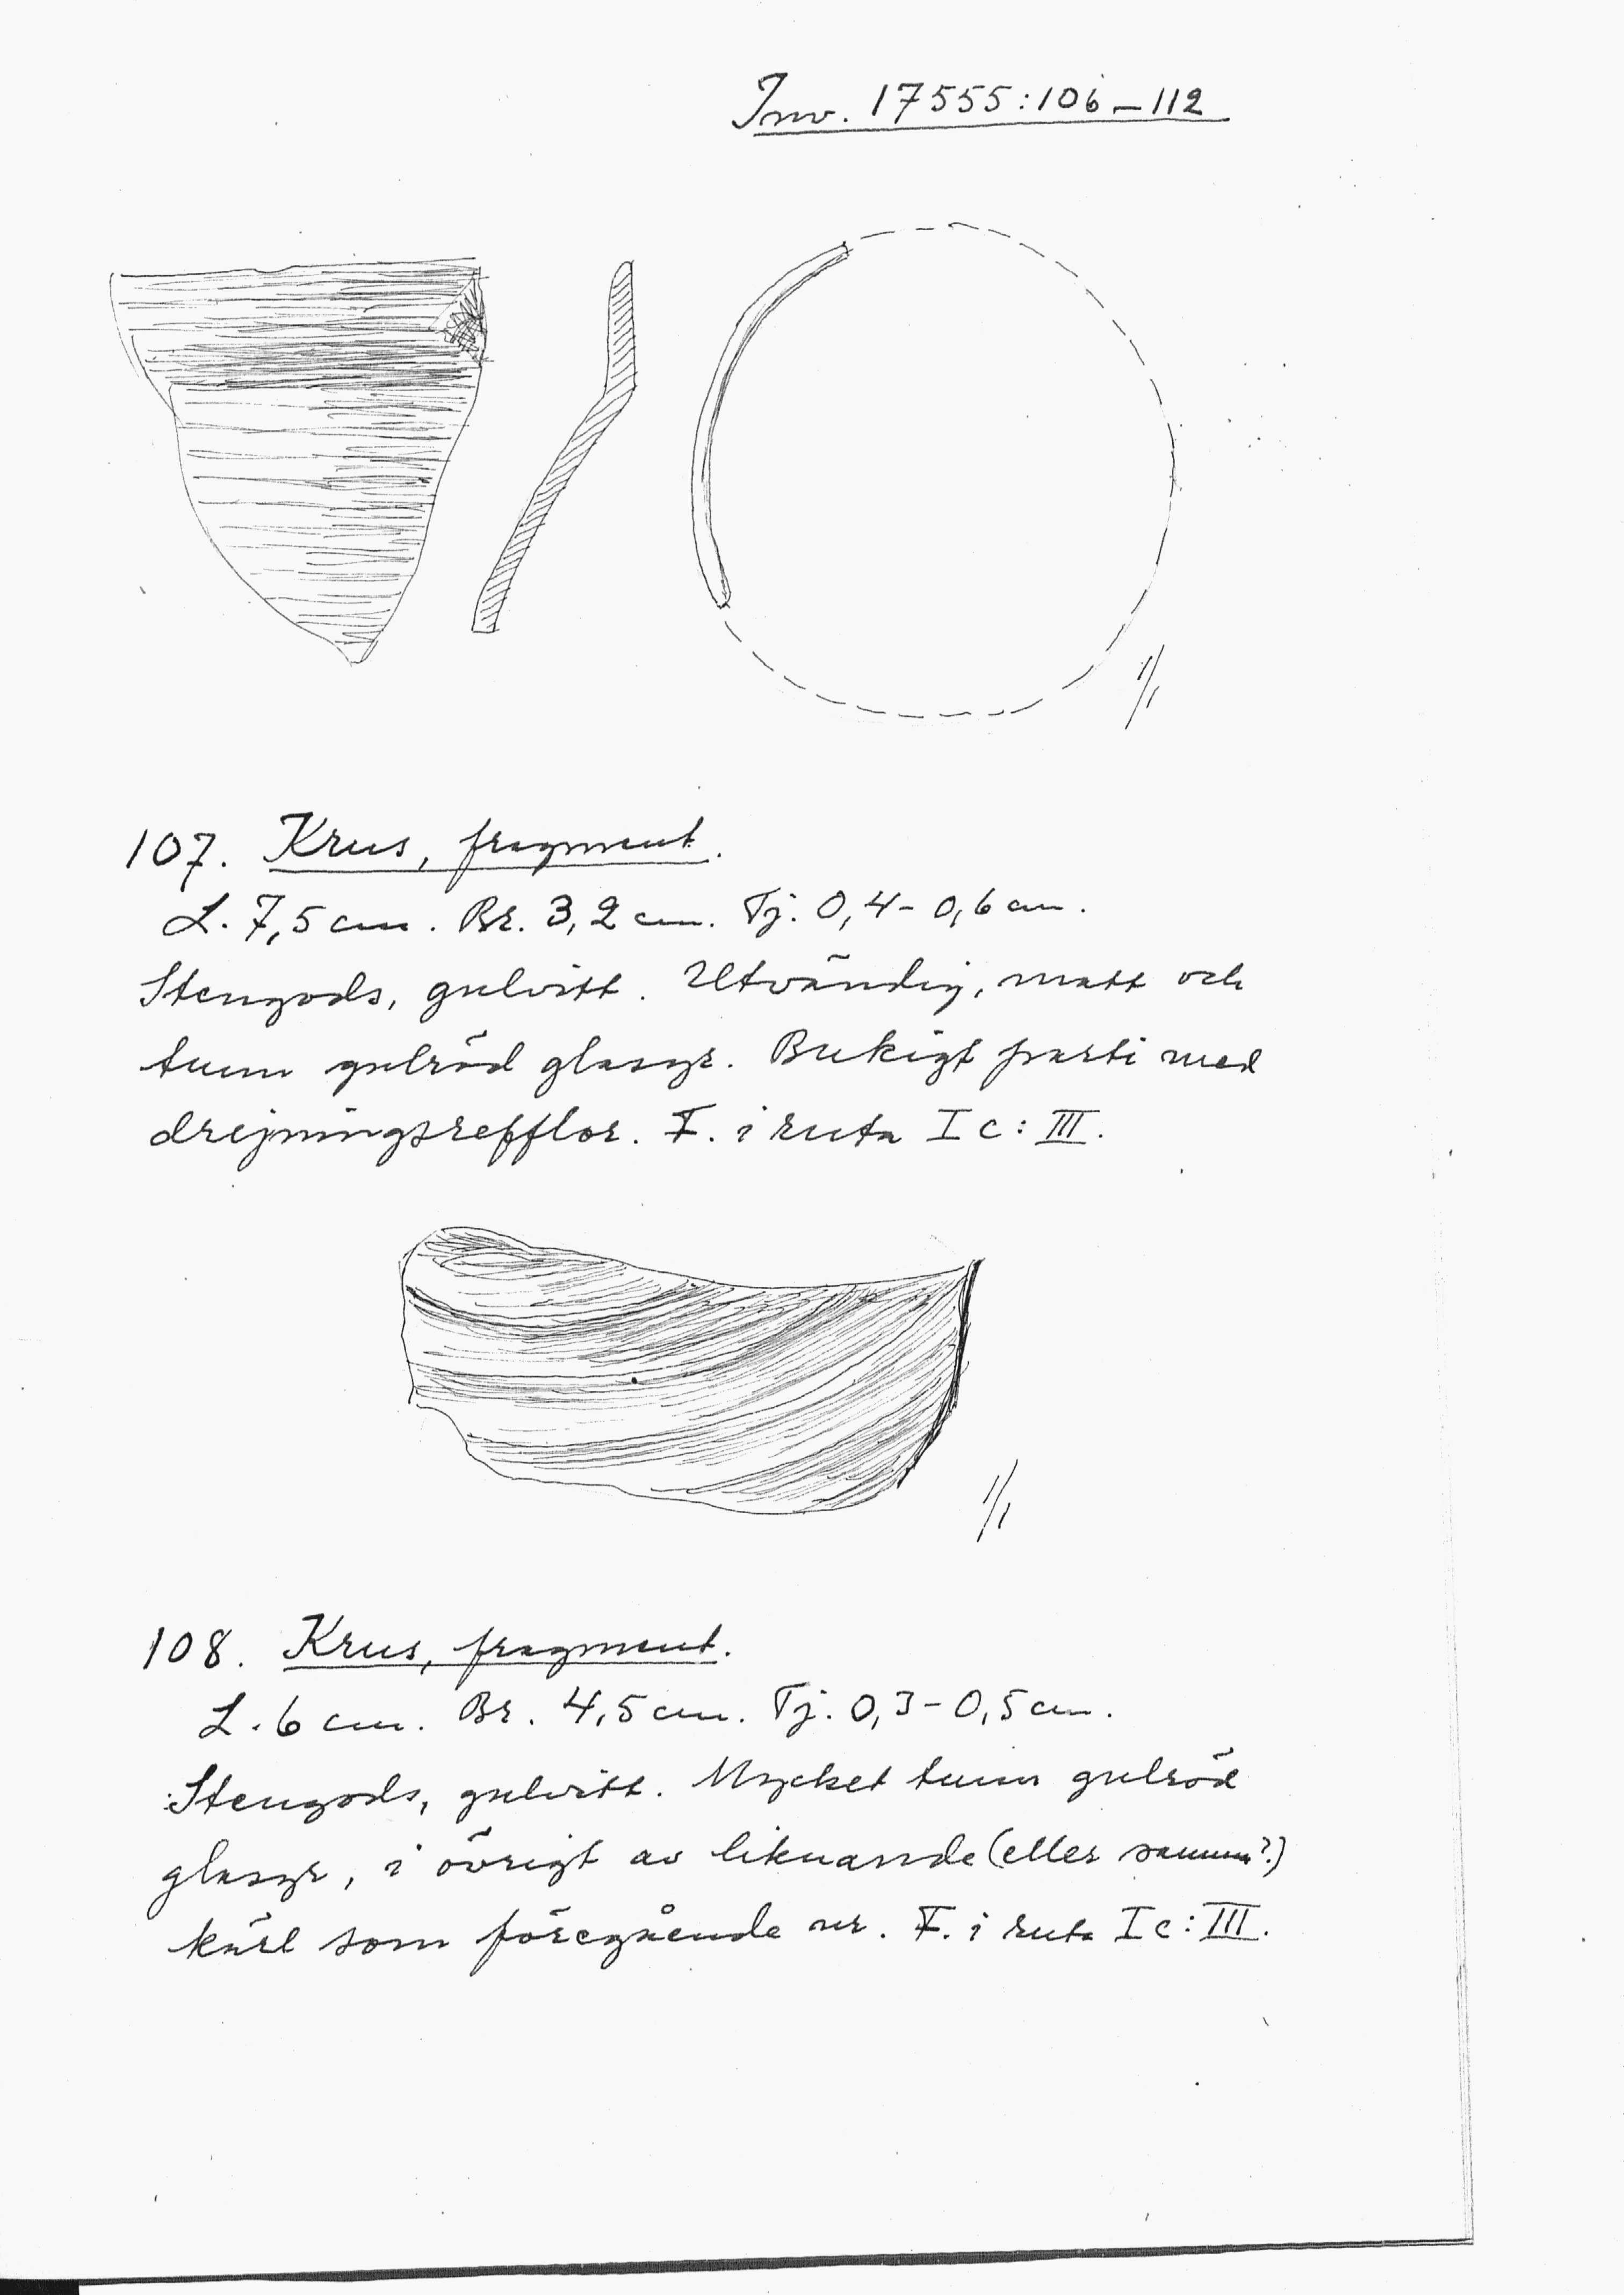 Inv. 17555:106–112
1/1
107. Krus, fragment.
L. 7,5 cm. Br. 3,2 cm. Tj. 0,4– 0,6 cm.
Stengods, gulvitt. Utvändig, matt och
tunn gulröd glasyr. Bukigt parti med
drejningsrefflor. F. i ruta I c: III.
1/1
108. Krus, fragment.
L. 6 cm. Br. 4,5 cm. Tj. 0,3– 0,5 cm.
Stengods, gulvitt. Mycket tunn gulröd
glasyr, i övrigt av liknande (eller samma?)
kärl som föregående nr. F. i ruta I c: III.